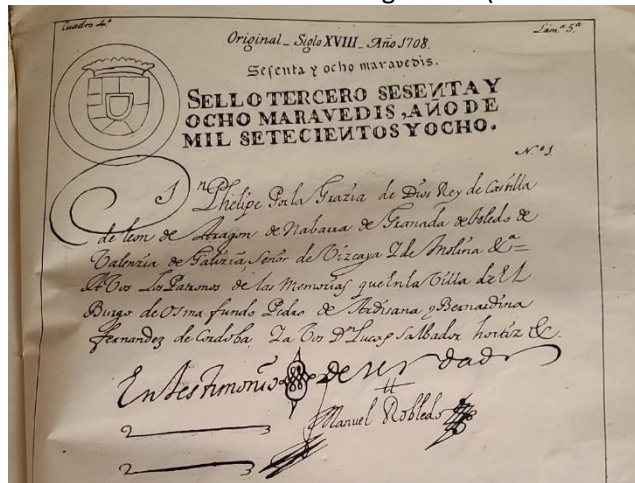 Cuadro 4.º
Lám.ª 5.ª
Original - Siglo XVIII - Año 1708.
Sesenta y ocho maravedis.
SELLO TERCERO SESENTA Y
OCHO MARAVEDIS, AÑO DE
MIL SETECIENTOS Y OCHO.
N.º 1.
Dn Phelipe Por la Grazia de Dios Rey de Castilla
de leon de Aragon de Nabarra de Granada de Toledo de
Valenzia de Galizia, Señor de Vizcaya Y de Molina &ª=
A Vos Los Patronos de las Memorias que en la Villa de El
Burgo de Osma fundo Pedro de Ardisana y Bernardina
fernandez de Cordoba, Ya Vos Dn Lucas Salbador hortiz &.
En testimonio de verdad
Manuel Robledo